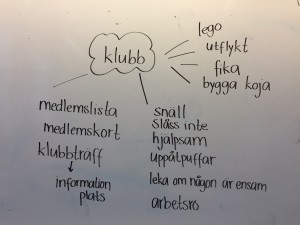 klubb
lego
utflykt
fika
bygga koja
medlemslista
medlemskort
klubbträff
information
plats
snäll
slåss inte
hjälpsam
uppåtpuffar
leka om någon är ensam
arbetsro